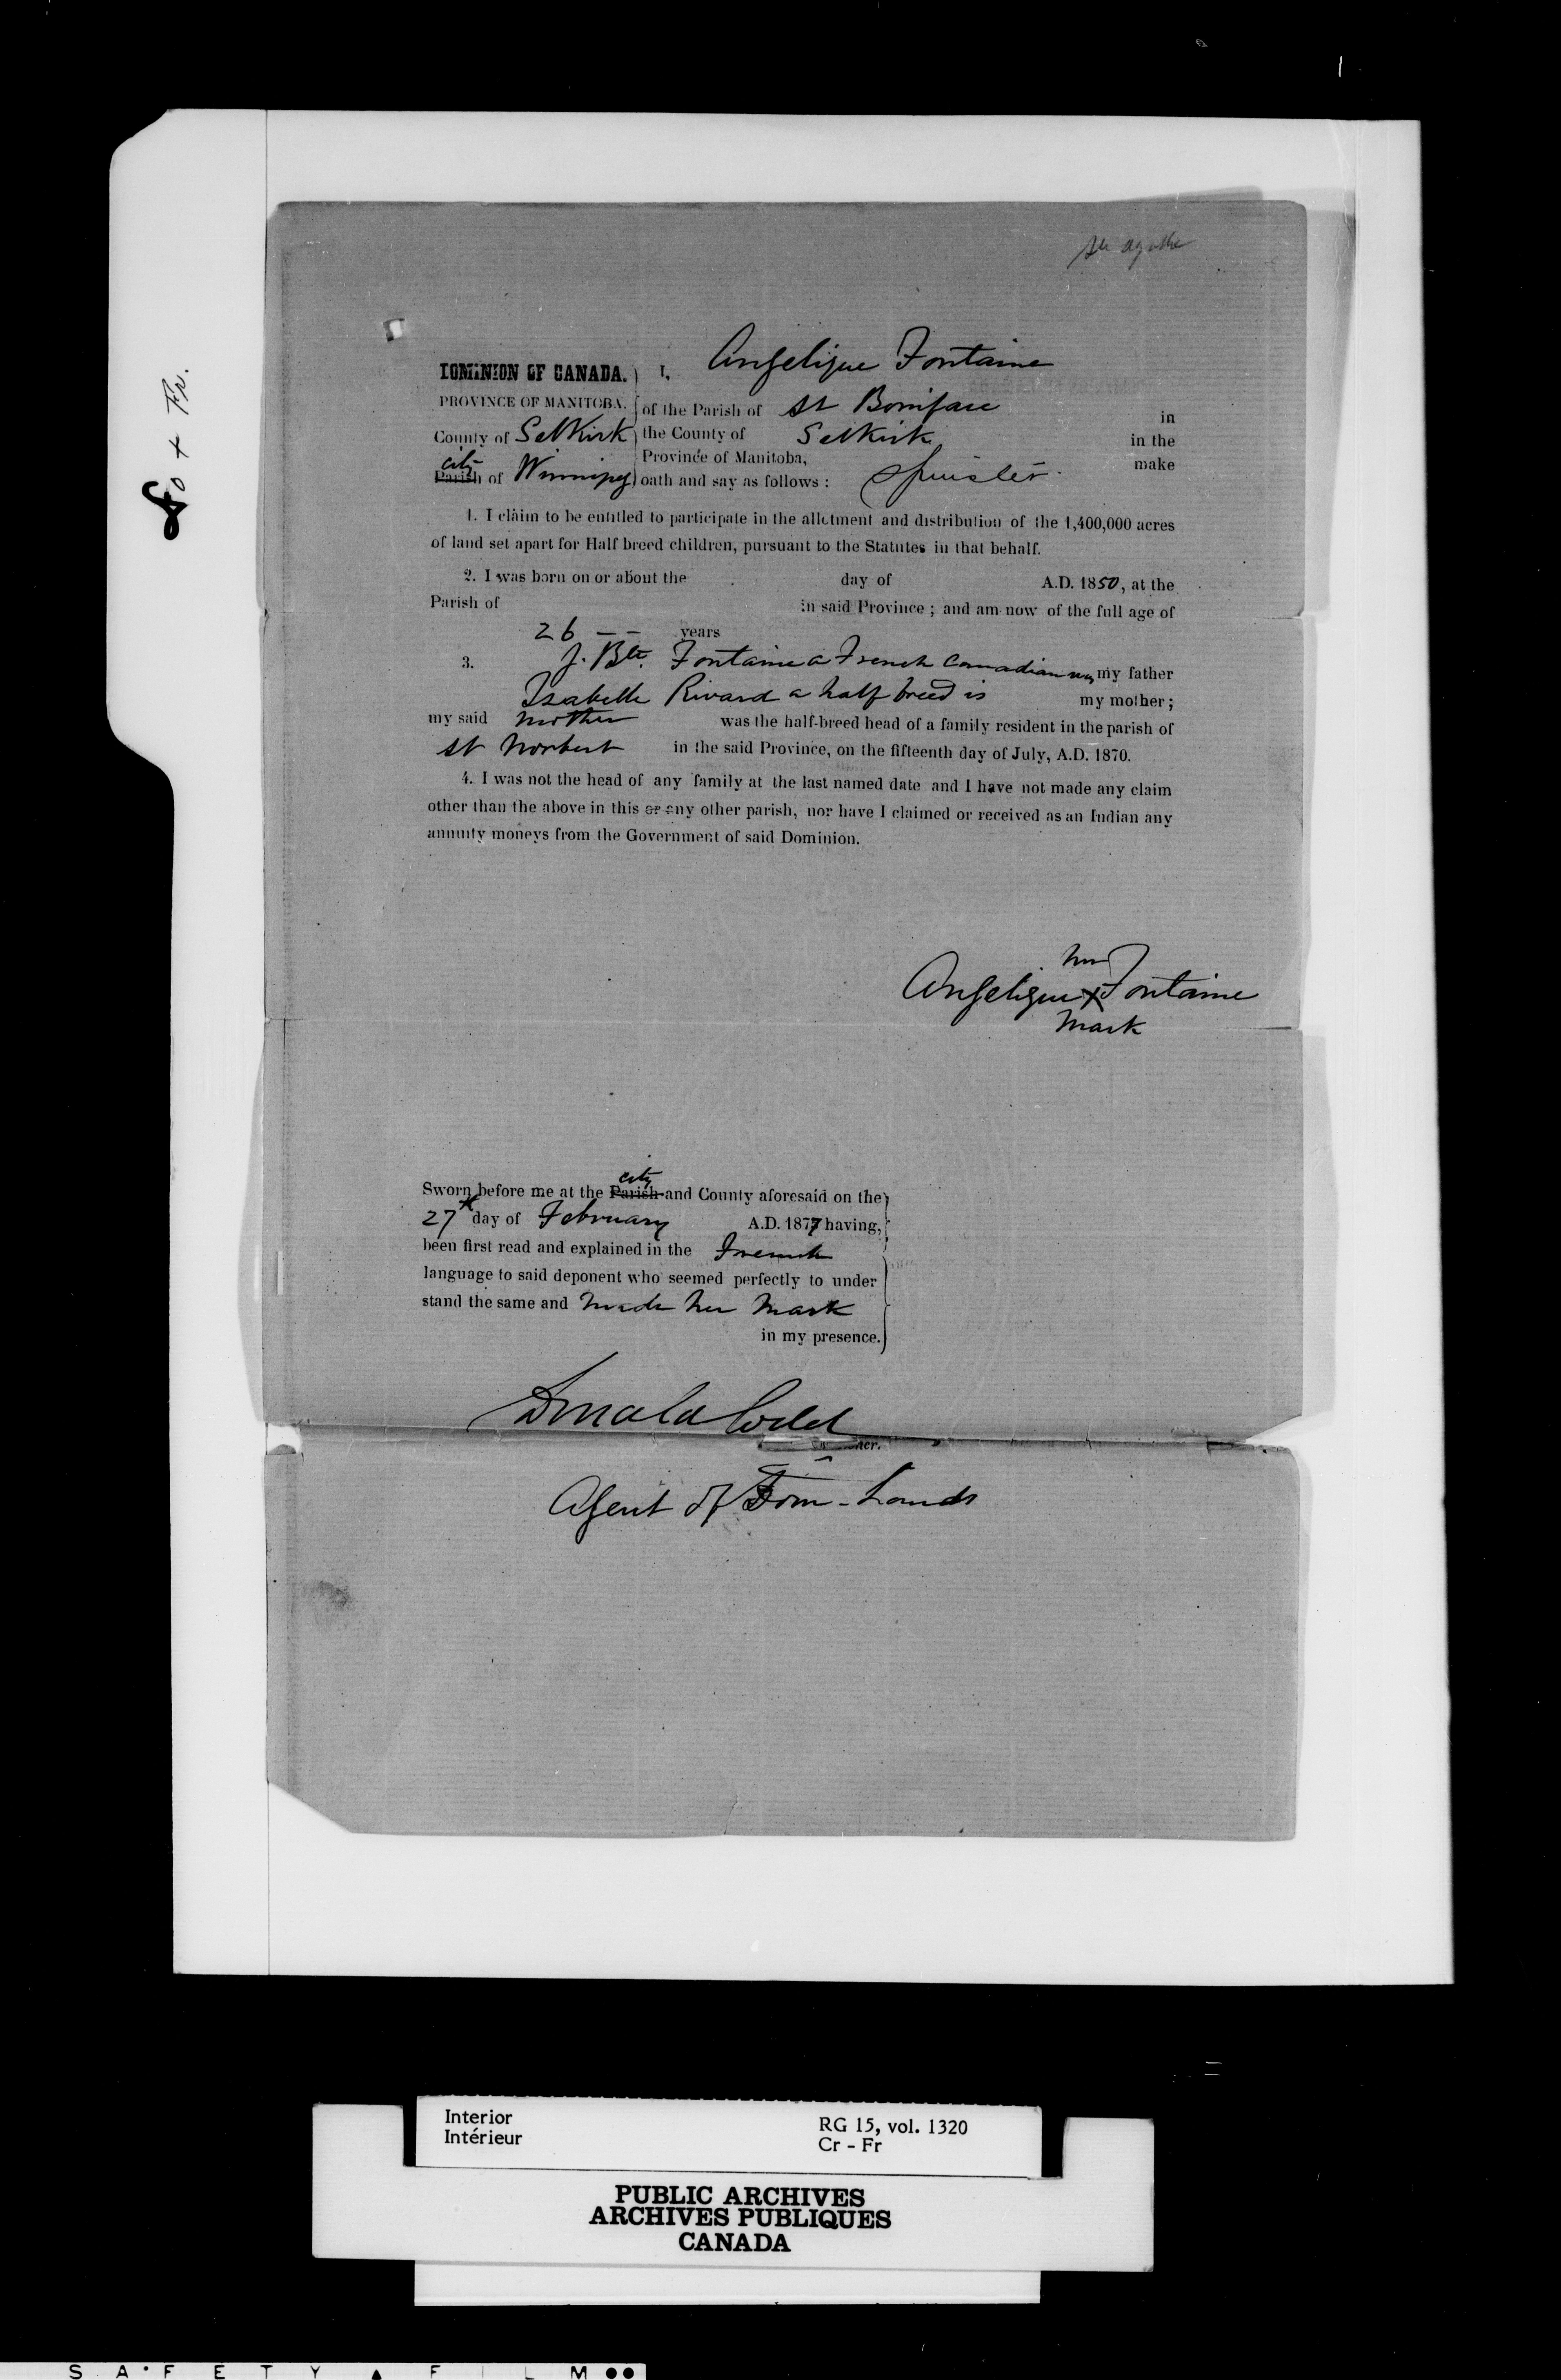 Ste Agathe
Fo + Fr.
DOMINION OF CANADA. I, Angelique Fontaine
PROVINCE OF MANITOBA. of the Parish of St Boniface in
County of Selkirk the County of Selkirk in the
Province of Manitoba, make
city
Parish of Winnipeg oath and say as follows : Spinster.
1. I claim to be entitled to participate in the allotment and distribution of the 1,400,000 acres
of land set apart for Half breed children, pursuant to the Statutes in that behalf.
2. I was born on or about the day of A.D. 1850, at the
Parish of in said Province ; and am now of the full age of
26 -- years
3. J. Bte. Fontaine a French Canadian was my father
Isabelle Rivard a half breed is my mother ;
my said mother was the half-breed head of a family resident in the parish of
St Norbert in the said Province, on the fifteenth day of July, A.D. 1870.
4. I was not the head of any family at the last named date and I have not made any claim
other than the above in this or any other parish, nor have I claimed or received as an Indian any
annuity moneys from the Government of said Dominion.
her
Angelique X Fontaine
mark
city
Sworn before me at the Parish and County aforesaid on the
27th day of February A.D. 1877 having,
been first read and explained in the French
language to said deponent who seemed perfectly to under
stand the same and made her mark
in my presence.
Donald Codd
Agent of Dom. Lands
Interior RG 15, vol. 1320
Intérieur Cr - Fr
PUBLIC ARCHIVES
ARCHIVES PUBLIQUES
CANADA
SAFETY FILM